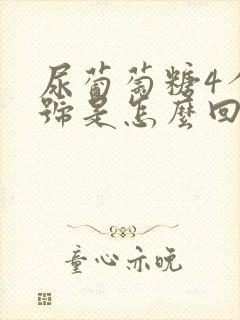 尿葡萄糖4个
號是怎麼回
童心亦晚